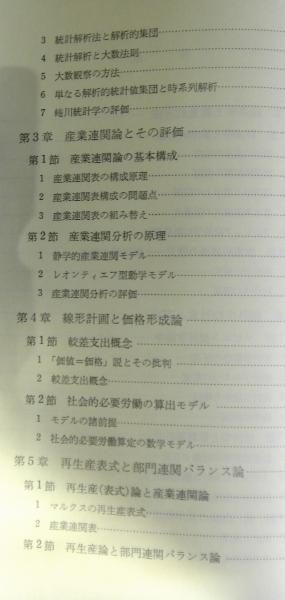 3 統計解析法と解析的集団
4 統計解析と大数法則
5 大数観察の方法
6 単なる解析的統計値集団と時系列解析
7 蜷川統計学の評価
第3章 産業連関論とその評価
第1節 産業連関論の基本構成
1 産業連関表の構成原理
2 産業連関表構成の問題点
3 産業連関表の組み替え
第2節 産業連関分析の原理
1 静学的産業連関モデル
2 レオンティエフ型動学モデル
3 産業連関分析の評価
第4章 線形計画と価格形成論
第1節 較差支出概念
1 「価値=価格」説とその批判
2 較差支出概念
第2節 社会的必要労働の算出モデル
1 モデルの諸前提
2 社会的必要労働算定の数学モデル
第5章 再生産表式と部門連関バランス論
第1節 再生産(表式)論と産業連関論
1 マルクスの再生産表式
2 産業連関表
第2節 再生産論と部門連関バランス論